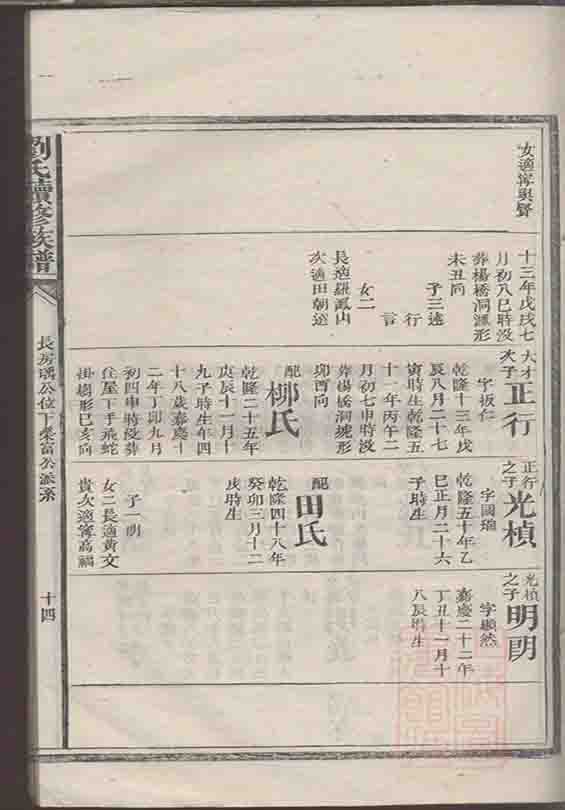 女適寗與賢
十三年戊戌七
月初八巳時沒
葬楊橋洞源形
未丑向
子三遠
行
言
女二
長適羅鳳山
次適田朝選
大才
次子
正行
字振仁
乾隆十三年戊
辰八月二十七
寅時生乾隆五
十一年丙午二
月初七申時沒
葬楊橋洞塊形
卯酉向
配
柳氏
乾隆二十五年
庚辰十一月十
九子時生年四
十八歲嘉慶十
二年丁卯九月
初四申時沒葬
住屋下手飛蛇
掛樹形巳亥向
正行
之子
光楨
字國瑞
乾隆五十年乙
巳正月二十六
子時生
配
田氏
乾隆四十八年
癸卯三月十二
戌時生
子一明
女二長適黃文
貴次適寗高福
光楨
之子
明
字顯然
嘉慶二十二年
丁丑十一月十
八辰時生
劉氏續修族譜
長房瑀公位下榮富公派系
十四